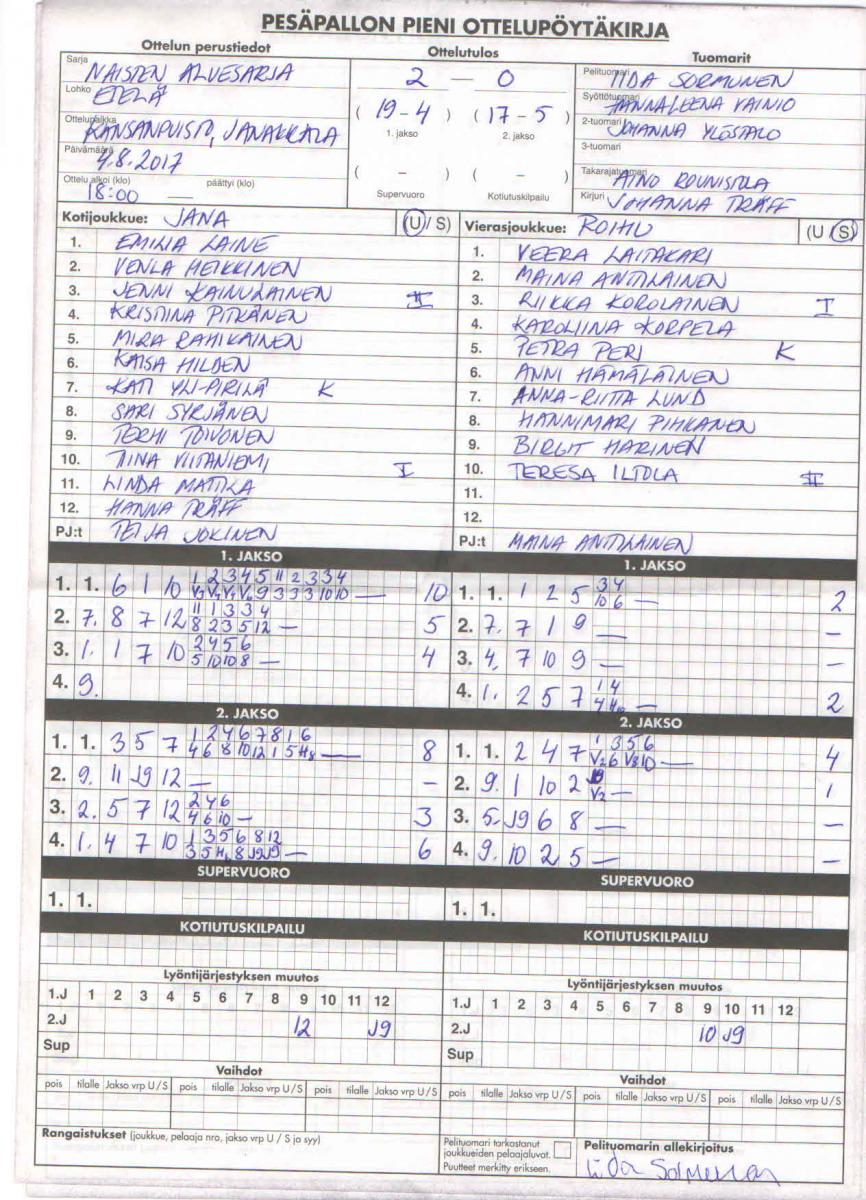 PESÄPALLON PIENI OTTELUPÖYTÄKIRJA
Ottelun perustiedot
Sarja NAISTEN ALUESARJA
Lohko ETELÄ
Ottelupaikka KANSANPUISTO, JANAKKALA
Päivämäärä 4.8.2017
Ottelu alkoi (klo) päättyi (klo)
18:00 —
Ottelutulos
2 — 0
( 19 - 4 ) ( 17 - 5 )
1. jakso 2. jakso
( – ) ( – )
Supervuoro Kotiutuskilpailu
Tuomarit
Pelituomari IIDA SORMUNEN
Syöttötuomari HANNALEENA VAINIO
2-tuomari JOHANNA YLÖSTALO
3-tuomari
Takarajatuomari AINO ROUNISTOLA
Kirjuri JOHANNA TRÄFF
Kotijoukkue: JANA (U / S)
1. EMILIA LAINE
2. VENLA HEIKKINEN
3. JENNI KAINULAINEN II
4. KRISTIINA PITKÄNEN
5. MIRA RAHIKAINEN
6. KAISA HILDEN
7. KATI YLI-PIRILÄ K
8. SARI SYRJÄNEN
9. TERHI TOIVONEN
10. TIINA VIITANIEMI I
11. LINDA MATTILA
12. HANNA TRÄFF
PJ:t TEIJA JOKINEN
Vierasjoukkue: ROIHU (U / S)
1. VEERA LAITAKARI
2. MAINA ANTTILAINEN
3. RIIKKA KOROLAINEN I
4. KAROLIINA KORPELA
5. PETRA PERI K
6. ANNI HÄMÄLÄINEN
7. ANNA-RIITTA LUND
8. HANNIMARI PIHKANEN
9. BIRGIT HARINEN
10. TERESA ILTOLA II
11.
12.
PJ:t MAINA ANTTILAINEN
1. JAKSO
1. 1. 6 1 10 1 2 3 4 5 11 2 3 3 4
9 3 3 3 10 10 — 10
2. 7. 8 7 12 11 1 3 3 4
8 2 3 5 12 — 5
3. 1. 1 7 10 2 4 5 6
5 10 10 8 — 4
4. 9.
1. JAKSO
1. 1. 1 2 5 3 4
10 6 — 2
2. 7. 7 1 9 — –
3. 4. 7 10 9 — –
4. 1. 2 5 7 1 4
— 2
2. JAKSO
1. 1. 3 5 7 1 2 4 6 7 8 1 6
4 6 8 10 12 1 5 H8 — 8
2. 9. 11 J9 12 — –
3. 2. 5 7 12 2 4 6
4 6 10 — 3
4. 1. 4 7 10 1 3 5 6 8 12
3 5 8 J9 J9 — 6
2. JAKSO
1. 1. 2 4 7 1 3 5 6
V2 6 V3 10 — 4
2. 9. 1 10 2
V2 — 1
3. 5. J9 6 8 — –
4. 9. 10 2 5 — –
SUPERVUORO
1. 1.
SUPERVUORO
1. 1.
KOTIUTUSKILPAILU
KOTIUTUSKILPAILU
Lyöntijärjestyksen muutos
1.J 1 2 3 4 5 6 7 8 9 10 11 12
2.J 12 J9
Sup
Lyöntijärjestyksen muutos
1.J 1 2 3 4 5 6 7 8 9 10 11 12
2.J 10 J9
Sup
Vaihdot
pois tilalle Jakso vrp U/S pois tilalle Jakso vrp U/S pois tilalle Jakso vrp U/S
Vaihdot
pois tilalle Jakso vrp U/S pois tilalle Jakso vrp U/S pois tilalle Jakso vrp U/S
Rangaistukset (joukkue, pelaaja nro, jakso vrp U / S ja syy)
Pelituomari tarkastanut
joukkueiden pelaajaluvat.
Puutteet merkitty erikseen.
Pelituomarin allekirjoitus
Iida Sormunen